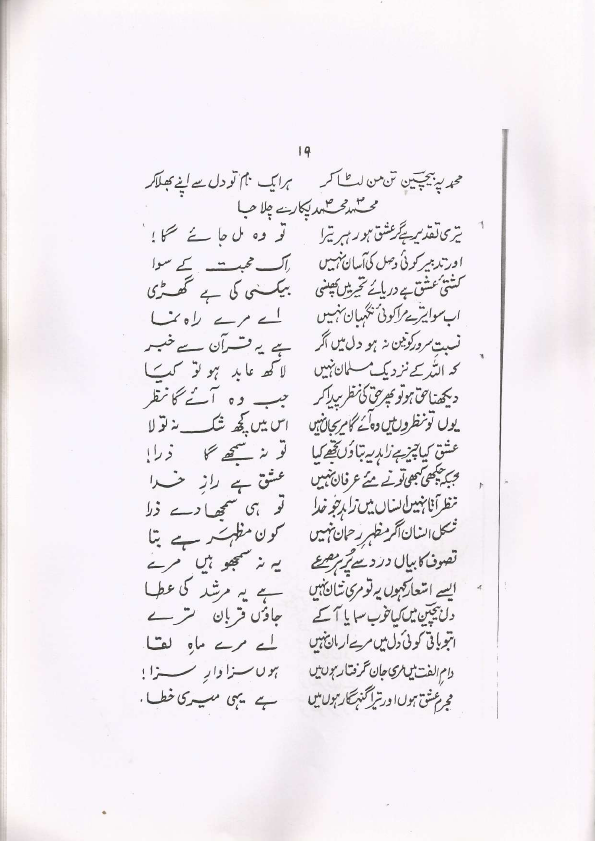 ۱۹
محمد پہ بیچین تن من لٹا کر ہر ایک نام تو دل سے اپنے بھلا کر
محمد محمد پکارے چلا جا
تیری تقدیر ہے گر عشق ہو رہبر تیرا تو وہ مل جائے گا!
اور تدبیر کوئی وصل کی آسان نہیں اِک محبت کے سوا
کشتئ عشق ہے دریائے تحیر میں پھنسی بیکسی کی ہے گھڑی
اب سوا تیرے مرا کوئی نگہبان نہیں اے مرے راہ نما
نسبتِ سرورِ کونین نہ ہو دل میں اگر ہے یہ قرآن سے خبر
کہ اللہ کے نزدیک مسلمان نہیں لاکھ عابد ہو تو کیا
دیکھنا حق ہو تو پھر حق کی نظر پیدا کر جب وہ آئے گا نظر
یوں تو نظروں میں وہ آئے گا مری جان نہیں اس میں کچھ شک نہ تو لا
عشق کیا چیز ہے زاہد یہ بتاؤں تجھے کیا تو نہ سمجھے گا ذرا!
جبکہ چکھی کبھی تو نے مئے عرفان نہیں عشق ہے رازِ خدا
نظر آتا نہیں انساں میں زاہد جو خدا تو ہی سمجھا دے ذرا
شکل انسان اگر مظہرِ رحمان نہیں کون مظہر ہے بتا
تصوف کا بیاں درد سے پُر ہر مصرعے یہ نہ سمجھو ہیں مرے
ایسے اشعار کہوں یہ تو مری شان نہیں ہے یہ مرشد کی عطا
دل بیچین میں کیا خوب سمایا آ کے جاؤں قربان ترے
اب تو باقی کوئی دل میں مرے ارمان نہیں اے مرے ماہِ لقا
دامِ الفت میں مری جان گرفتار ہوں میں ہوں سزاوارِ سزا!
مجرمِ عشق ہوں اور تیرا گنہگار ہوں میں ہے یہی میری خطا.